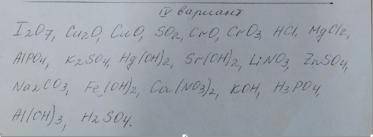 IV вариант
I2O7, Cu2O, CuO, SO2, CrO, CrO3, HCl, MgCl2,
AlPO4, K2SO4, Hg(OH)2, Sr(OH)2, LiNO3, ZnSO4,
Na2CO3, Fe(OH)2, Ca(NO3)2, KOH, H3PO4,
Al(OH)3, H2SO4.